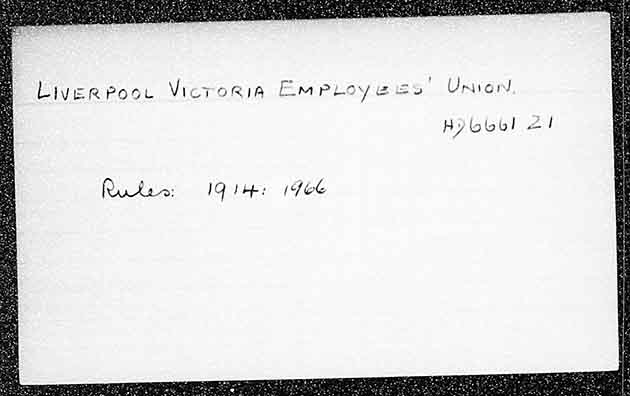 LIVERPOOL VICTORIA EMPLOYEES' UNION.
HD6661 Z1
Rules: 1914: 1966